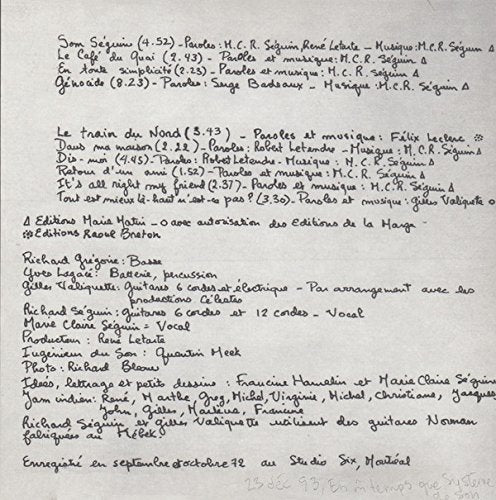 Som Séguin (4.52) - Paroles: M.C.R. Séguin, René Letarte - Musique: M.C.R. Séguin Δ
Le Café du Quai (2.43) - Paroles et musique: M.C.R. Séguin Δ
En toute simplicité (2.23) - Paroles et musique: M.C.R. Séguin Δ
Génocide (8.23) - Paroles: Serge Badeaux - Musique: M.C.R. Séguin Δ
Le train du Nord (3.43) - Paroles et musique: Félix Leclerc ※
Dans ma maison (2.22) - Paroles: Robert Letendre - Musique: M.C.R. Séguin Δ
Dis-moi (4.45) - Paroles: Robert Letendre - Musique: M.C.R. Séguin Δ
Retour d'un ami (1.52) - Paroles et musique: M.C.R. Séguin Δ
It's all right my friend (2.37) - Paroles et musique: M.C.R. Séguin Δ
Tout est mieux là-haut n'est-ce pas? (3.30) - Paroles et musique: Gilles Valiquette o
Δ Editions Marie Matin - o avec autorisation des Editions de la Marge
※ Editions Raoul Breton
Richard Grégoire: Basse
Yves Lagacé: Batterie, percussion
Gilles Valiquette: Guitares 6 cordes et électrique - Par arrangement avec les
productions Célestes
Richard Séguin: Guitares 6 cordes et 12 cordes - Vocal
Marie Claire Séguin = Vocal
Producteur: René Letarte
Ingénieur du Son: Quentin Meek
Photo: Richard
Idées, lettrage et petits dessins: Francine Hamelin et Marie Claire Séguin
Jam indien: René, Marthe, Greg, Michel, Virginie, Michel, Christiane, Jacques,
John, Gilles, Francine
Richard Séguin et Gilles Valiquette utilisent des guitares Norman
fabriquées au Mébek.
Enregistré en septembre et octobre 72 au Studio Six, Montréal
23 déc 93, En m temps que Système
de son